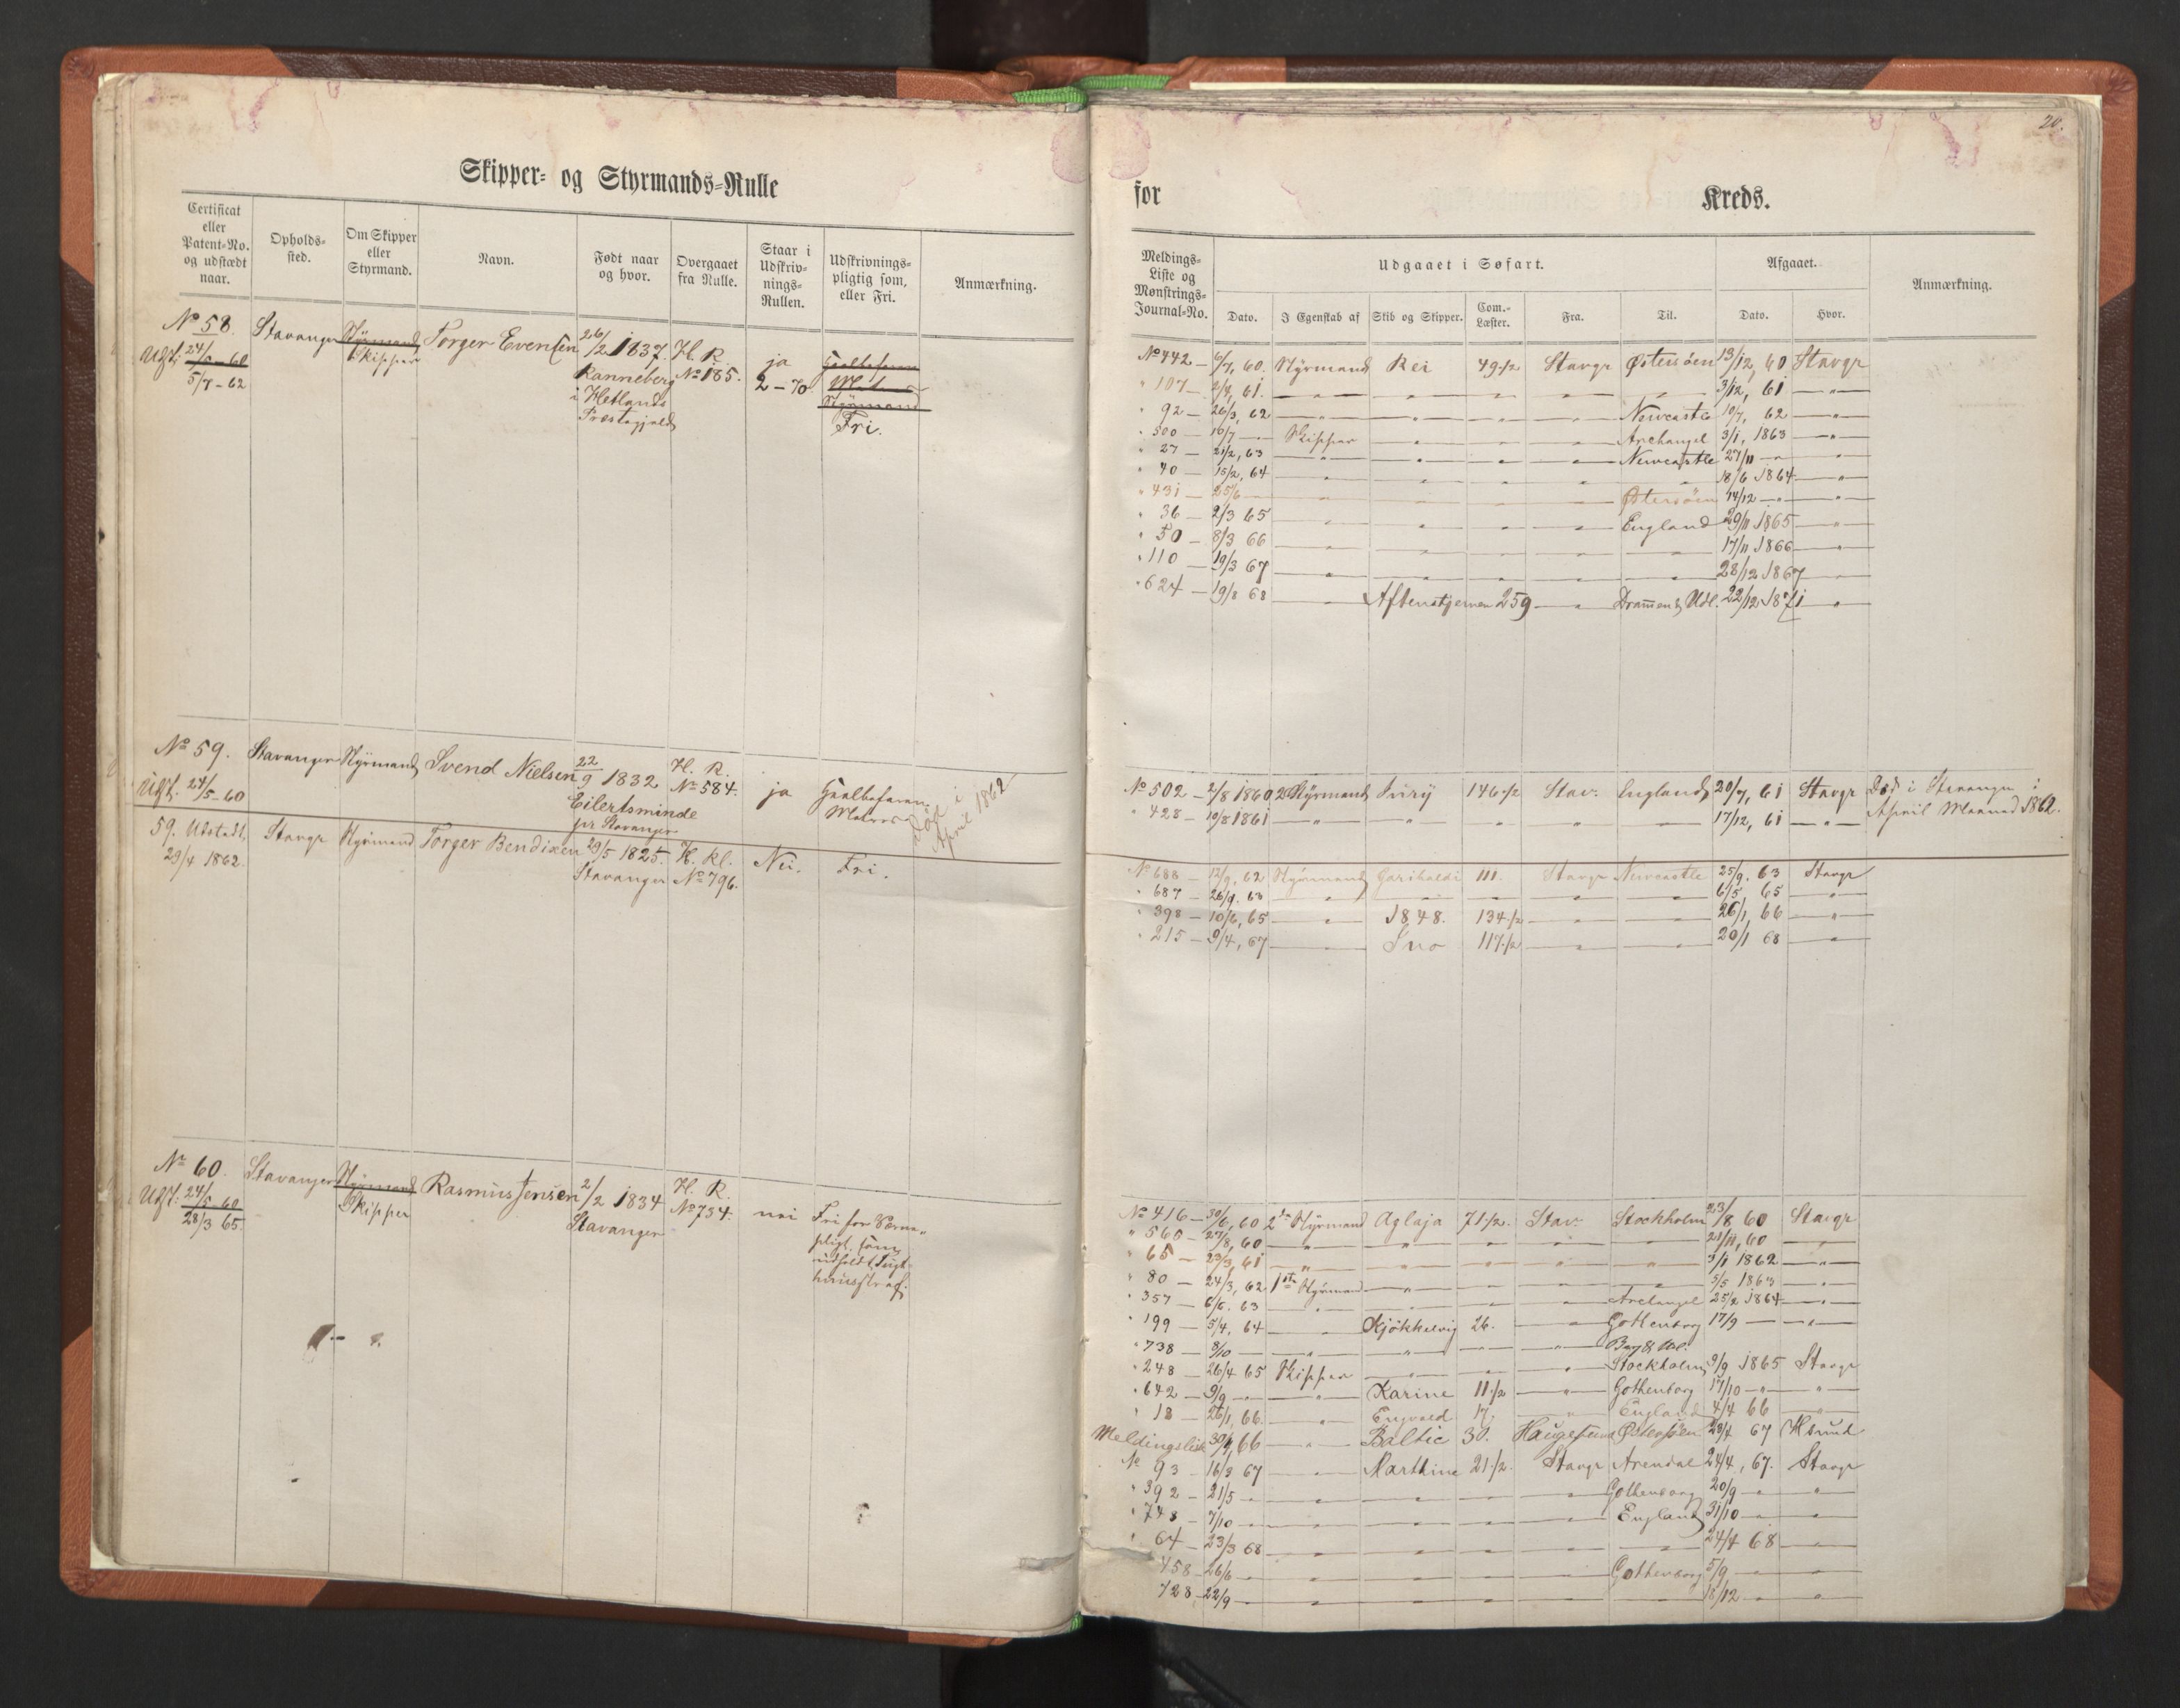 20.
Skipper- og Styrmands-Rulle
for Kreds.
Certificat eller Patent-No. og udstædt naar.
Opholds-sted.
Om Skipper eller Styrmand.
Navn.
Født naar og hvor.
Overgaaet fra Rulle.
Staar i Udskriv-nings-Rullen.
Udskrivnings-pligtig som, eller Fri.
Anmærkning.
Meldings-Liste og Mønstrings-Journal-No.
Udgaaet i Søfart.
Dato.
I Egenskab af
Skib og Skipper.
Com.-Læster.
Fra.
Til.
Afgaaet.
Dato.
Hvor.
Anmærkning.
No 58. Stavanger Styrmand Torger Evensen 26/2 1837. H. R. ja
Udst: 24/5-60 Skipper Ranneberg No 185. 2-70
5/7-62 i Hetlands Styrmand
Præstegjeld Fri.
No 442 — 6/7, 60. Styrmand Rei 49 1/2 Stavgr Østersøen 13/12, 60 Stavgr
" 107 — 2/4, 61. — — " — " — " — 3/12, 61 — " —
" 92 — 26/3, 62 — " — " — " — " — Newcastle 10/7, 62 — " —
" 500 — 10/7 — " — Skipper — " — " — " — Archangel 3/1, 1863 — " —
" 27 — 21/2, 63 — " — " — " — " — Newcastle 27/11 — " — "
" 40 — 15/2, 64 — " — " — " — " — " — 18/6 1864 — " —
" 431 — 25/6 — " — " — " — " — Østersøen 14/12 — " — " —
" 36 — 2/3 65 — " — " — " — " — England 29/11 1865 — " —
" 50 — 8/3 66 — " — " — " — " — 17/11 1866 — " —
" 110 — 19/3 67 — " — " — " — " — 28/12 1867 — " —
" 624 — 19/8 68 — Aftenstjernen 259 — " — Drammen & Udl. 22/12 1871 "
No 59. Stavanger Styrmand Svend Nielsen 22/9 1832 H. R. ja
Udst. 24/5-60 Eilertsminde No 584.
pr Stavanger
Død i April 1862
No 502 — 2/8 1860 2d Styrmand Iviry 146 1/2 Stav: England 20/7, 61 Stavgr Død i Stavanger i
" 428 — 10/8 1861 — " — " — " — " — 17/12, 61 — " — April Maaned 1862.
59. Udstedt, Stavgr Styrmand Torger Bendixen 29/5 1825. H. Rl. Nei. Fri.
29/4 1862. Stavanger No 796.
No 688 — 12/9, 62 Styrmand Garibaldi 111. Stavgr Newcastle 25/9. 63 Stavgr
" 687 — 26/9. 63 — " — " — " — " — 6/5 65 — " —
" 398 — 10/6, 65 — " — 1848. 134 1/2 — " — " — 26/1, 66 — " —
" 215 — 9/4, 67 — Ino 117 1/2 — " — " — 20/1 68 — " —
No 60. Stavanger Styrmand Rasmus Jensen 2/2 1834 H. R. nei Fri for Værne-
Udst: 24/5-60 Skipper Stavanger No 754. pligt, som
28/3 65. udholdt Tugt-
huusstraf.
No 416 — 30/6, 60 2den Styrmand Aglaja 71 1/2. Stav: Stockholm 23/8 60 Stavgr
" 560 — 27/8, 60 — " — " — " — " — 21/11, 60 — " —
" 65 — 23/3, 61 — " — " — " — " — " — 3/1 1862 — " —
" 80 — 24/3, 62 1ste Styrmand — " — " — " — 5/5 1863 — " —
" 357 — 6/6. 63 — " — " — " — " — Archangel 25/2 1864 — " —
" 199 — 5/4, 64 — " — Kjøkkelvig 26. — " — Gothenborg 17/9 — " —
" 738 — 8/10 — " — " — " — " —
" 248 — 26/4 65 Skipper — " — " — " — Stockholm 9/9 1865 Stavgr
" 642 — 9/9 — " — " — Karine 11 1/2 — " — Gothenborg 17/10 — " — "
" 18 — 26/1, 66. — " — Engvald 17. — " — England 4/4 66 — " —
Meldingsliste 30/4, 66 — " — Baltic 30. Haugesund Østersøen 29/4 67 Hsund
No 93 — 16/3 67 — " — Marthine 21 1/2. Stavgr Arendal 24/4, 67. Stavgr
" 392 — 21/5 — " — " — " — " — Gothenborg 20/9 — " — "
" 748 — 7/10 — " — " — " — " — England 31/10 — " — "
" 64 — 23/3 68 — " — " — " — " — 24/4 68 — " —
" 458 — 26/6 — " — " — " — " — Gothenborg 5/9 — " — "
" 728 — 22/9 — " — " — " — " — 18/12 — " — "